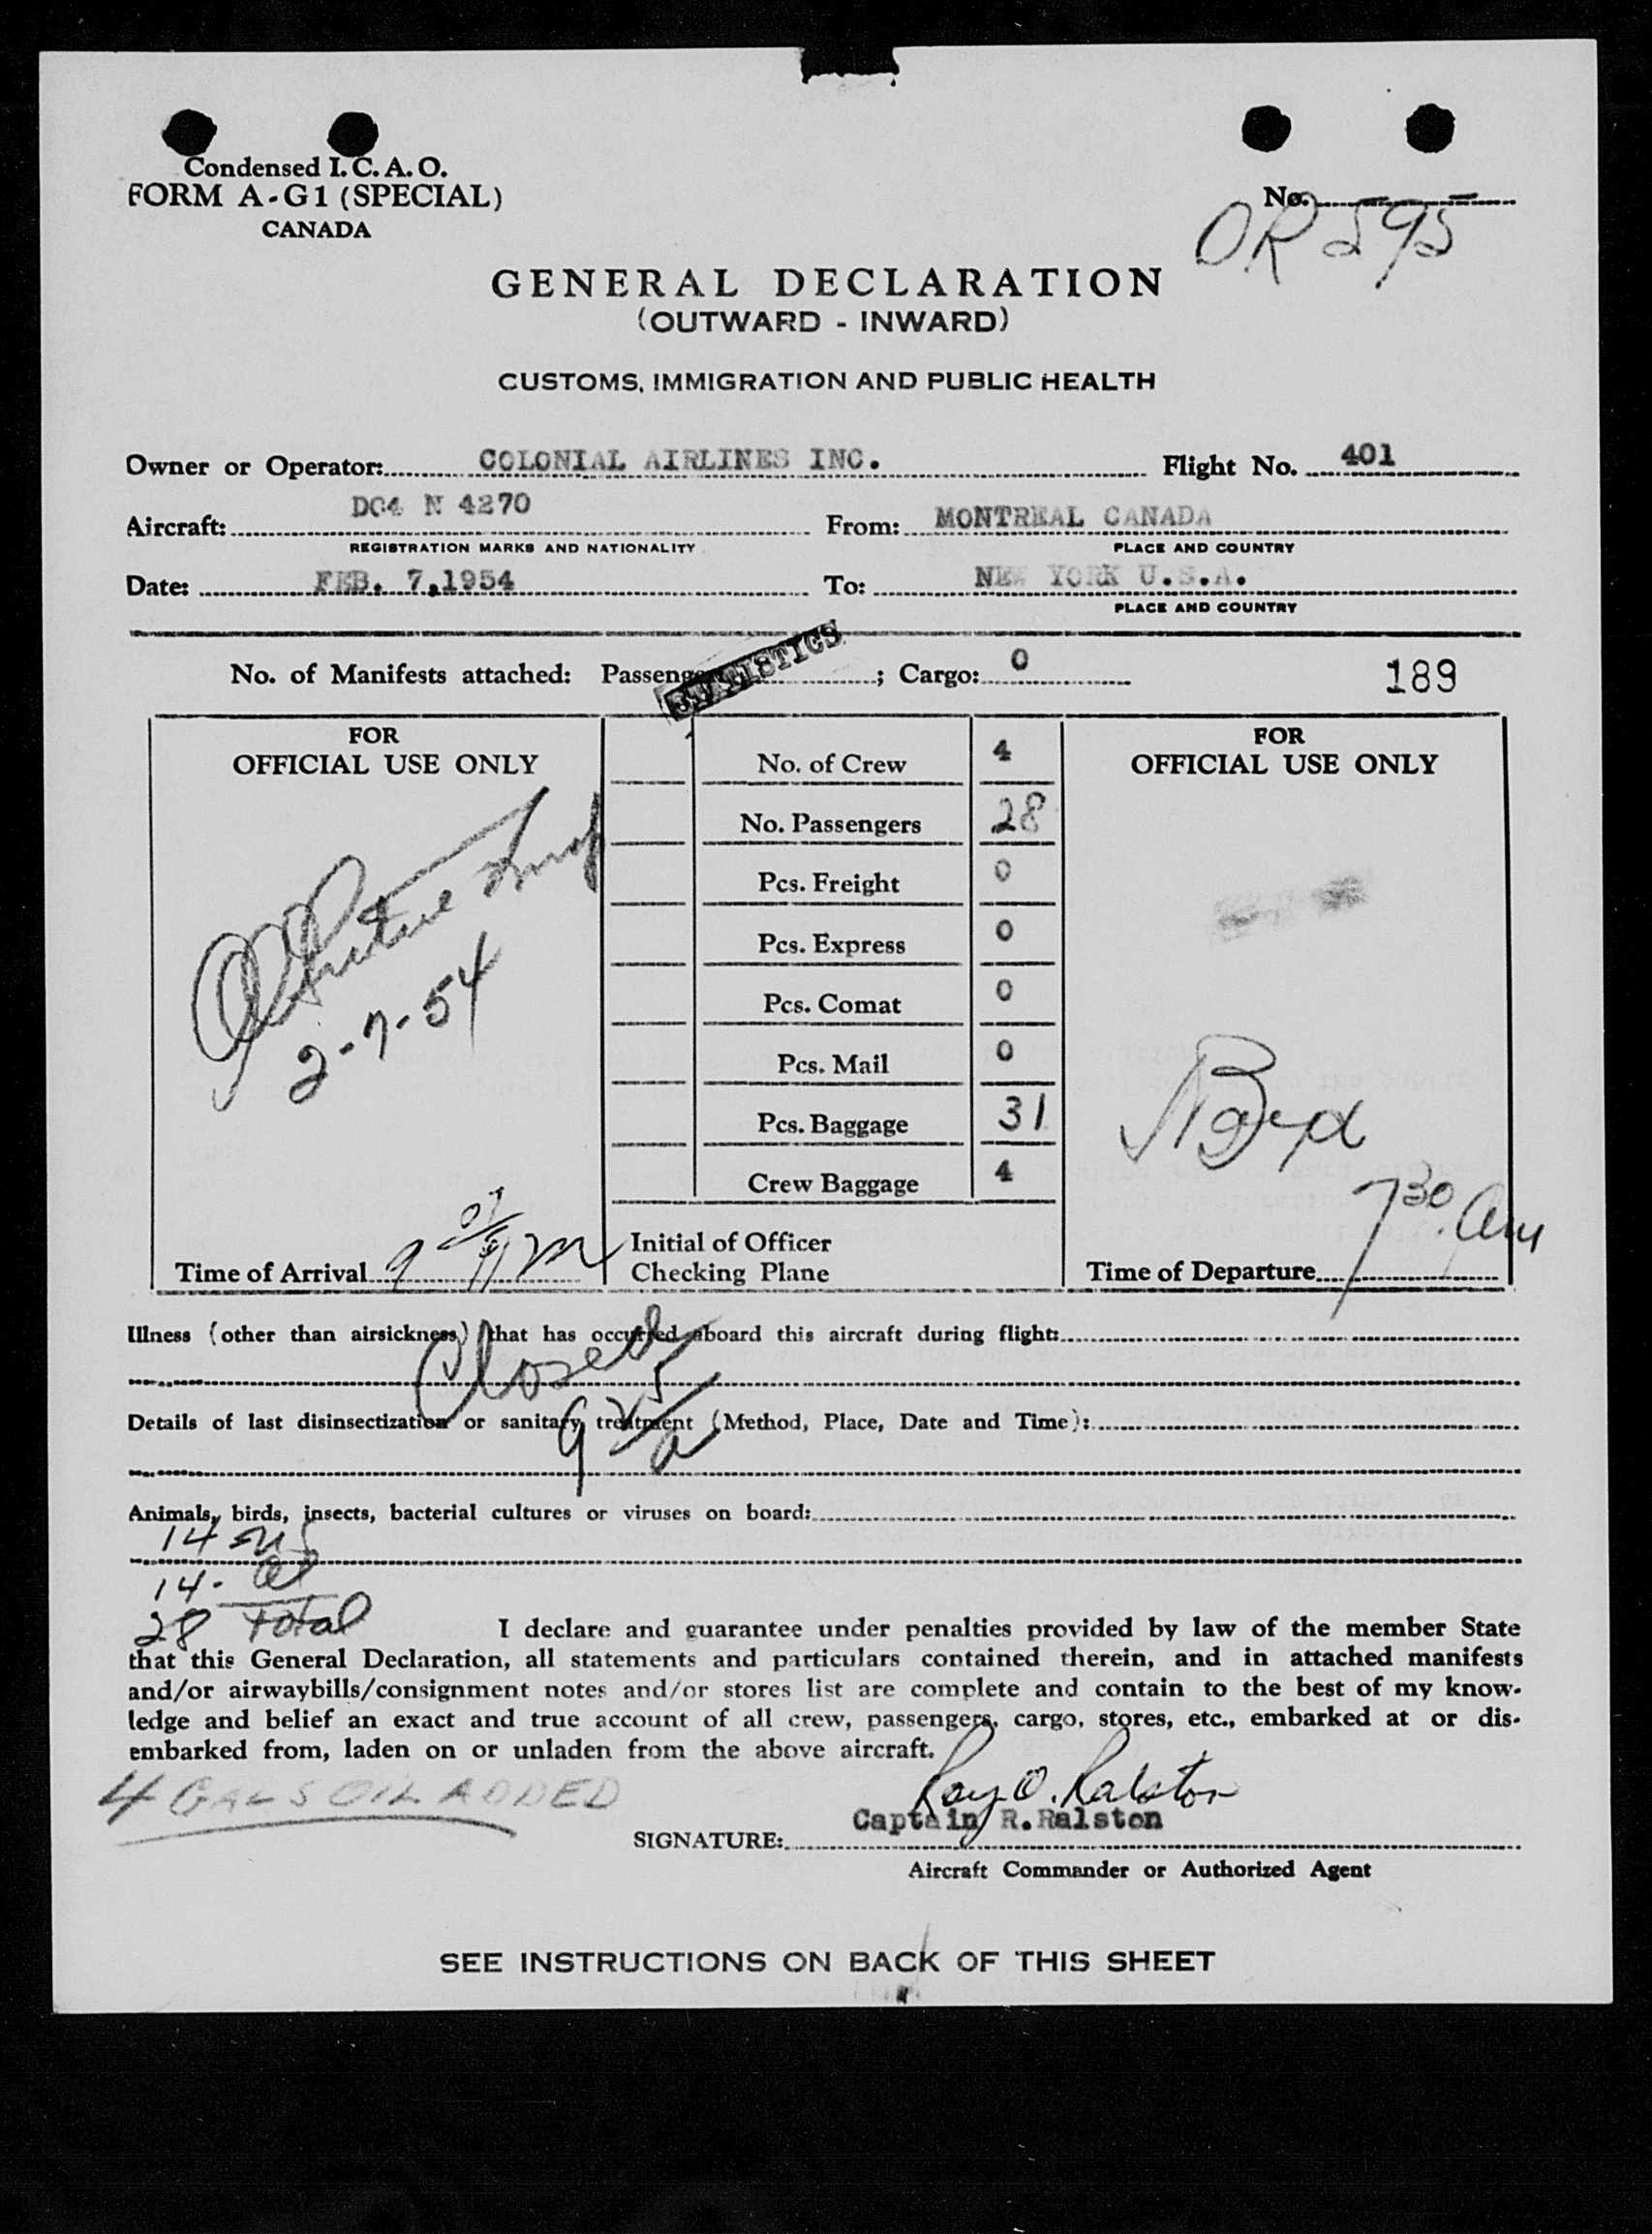 Condensed I.C.A.O.
FORM A-G1 (SPECIAL)
CANADA
No.
OR 595
GENERAL DECLARATION
(OUTWARD - INWARD)
CUSTOMS, IMMIGRATION AND PUBLIC HEALTH
Owner or Operator: COLONIAL AIRLINES INC. Flight No. 401
Aircraft: DC4 N 4270 From: MONTREAL CANADA
REGISTRATION MARKS AND NATIONALITY PLACE AND COUNTRY
Date: FEB. 7,1954 To: NEW YORK U.S.A.
PLACE AND COUNTRY
STATISTICS
No. of Manifests attached: Passenge ; Cargo: 0 189
FOR
OFFICIAL USE ONLY
2-7-54
Time of Arrival
No. of Crew 4
No. Passengers 28
Pcs. Freight 0
Pcs. Express 0
Pcs. Comat 0
Pcs. Mail 0
Pcs. Baggage 31
Crew Baggage 4
Initial of Officer
Checking Plane
FOR
OFFICIAL USE ONLY
Boyd
Time of Departure 7 30 am
Illness (other than airsickness) that has occurred aboard this aircraft during flight:
Closed
9 25/a
Details of last disinsectization or sanitary treatment (Method, Place, Date and Time):
Animals, birds, insects, bacterial cultures or viruses on board:
14
14.
28 Total
I declare and guarantee under penalties provided by law of the member State
that this General Declaration, all statements and particulars contained therein, and in attached manifests
and/or airwaybills/consignment notes and/or stores list are complete and contain to the best of my know-
ledge and belief an exact and true account of all crew, passengers, cargo, stores, etc., embarked at or dis-
embarked from, laden on or unladen from the above aircraft.
4 GALS OIL ADDED
Roy O. Ralston
Captain R.Ralston
SIGNATURE:
Aircraft Commander or Authorized Agent
SEE INSTRUCTIONS ON BACK OF THIS SHEET